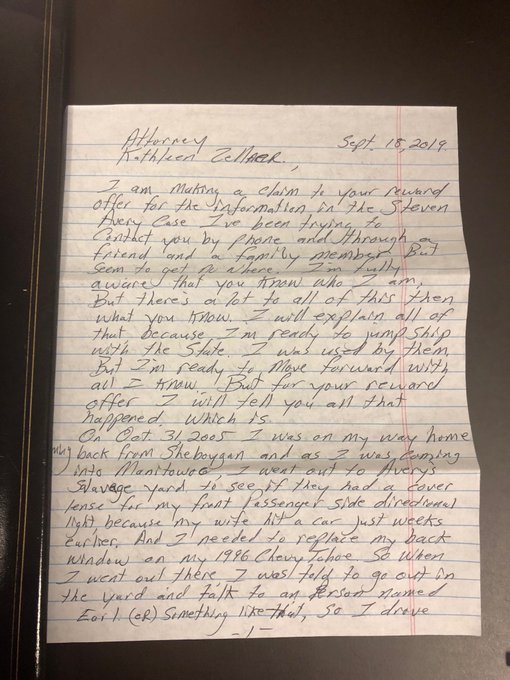 Attorney Sept. 18, 2019.
Kathleen Zellner,
I am making a claim to your reward
offer for the information in the Steven
Avery Case I've been trying to
Contact you by phone and through a
friend and a family member. But
seem to get no where. I'm fully
aware that you know who I am.
But there's a lot to all of this then
what you know. I will explain all of
that because I'm ready to jump ship
with the State. I was used by them.
But I'm ready to move forward with
all I know. But for your reward
offer I will tell you all that
happened. Which is.
On Oct. 31, 2005 I was on my way home
my back from Sheboygan and as I was coming
into Manitowoc, I went out to Averys
Salavage yard to see if they had a cover
lense for my front passenger side directional
light because my wife hit a car just weeks
earlier. And I needed to replace my back
window on my 1996 Chevy Tahoe So when
I went out there I was told to go out in
the yard and talk to an person named
Earl. (or) Something like that, So I drove
-1-